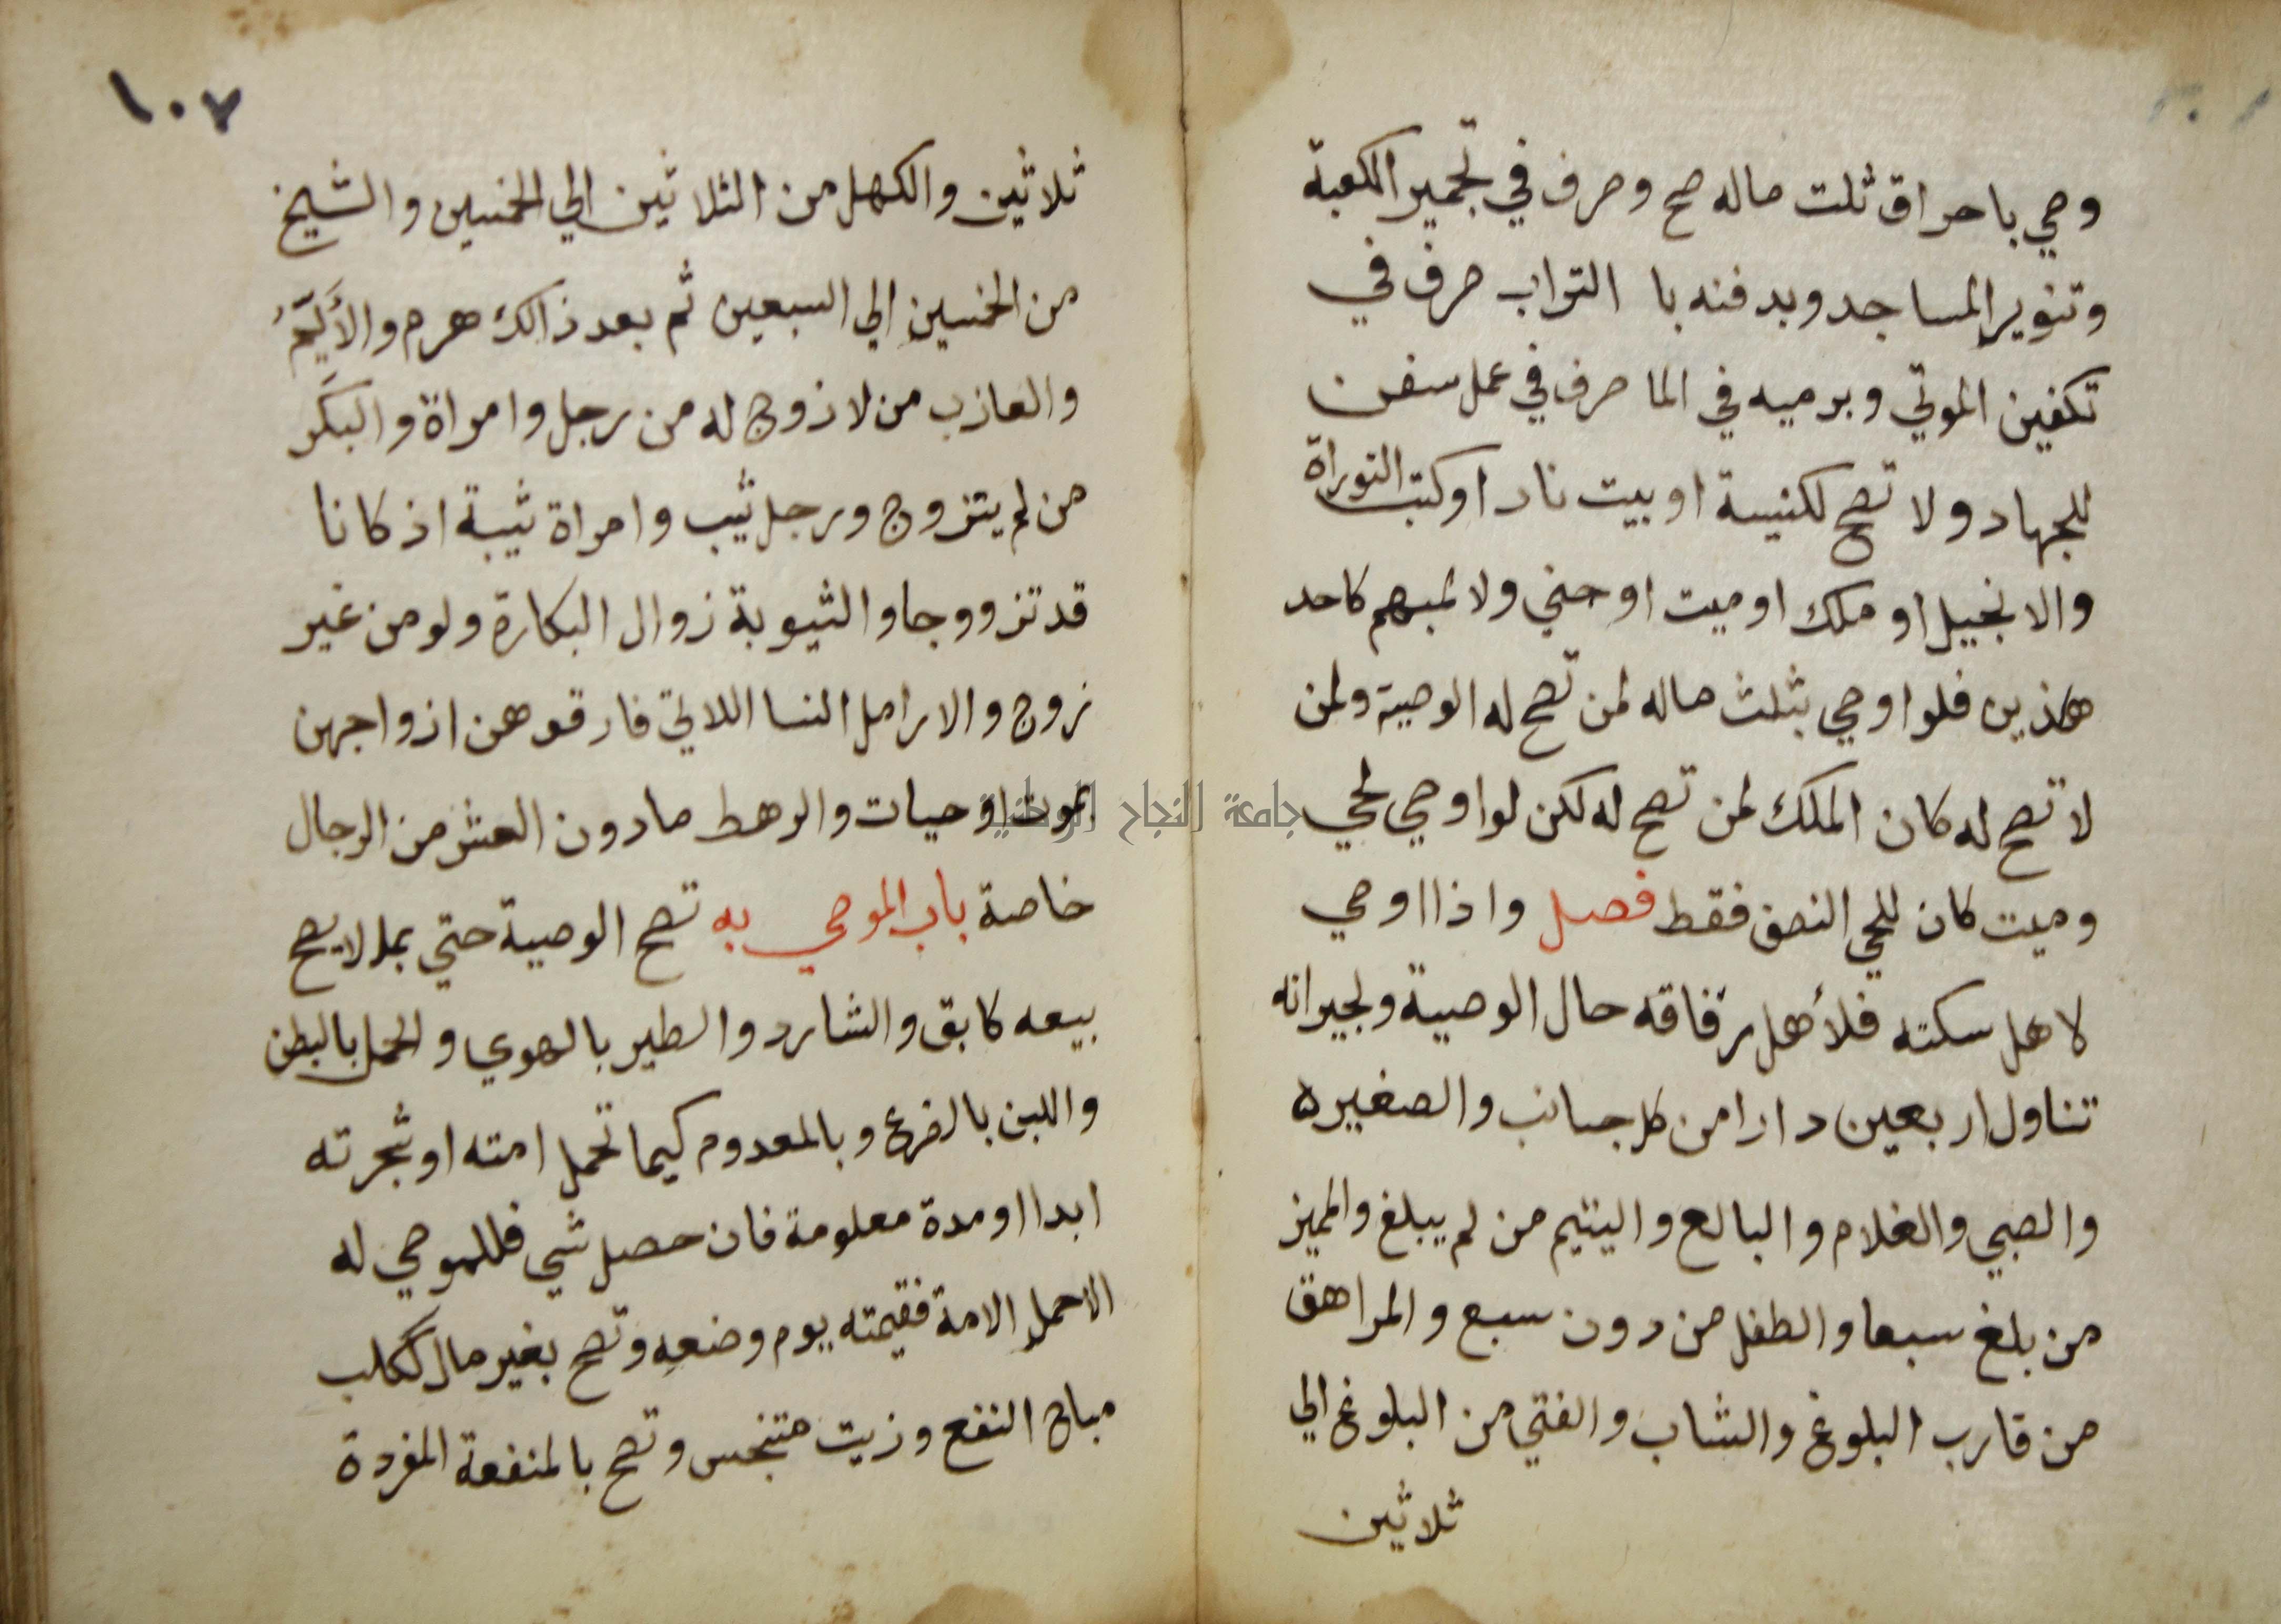 وصي باحراق ثلث ماله صح وصرف في تجمير الكعبة
وتنوير المساجد وبدفنه با التراب صرف في
تكفين الموتي وبرميه في الما صرف في عمل سفن
للجهاد ولا تصح لكنيسة او بيت نار او كتب التوراة
والانجيل او ملك او ميت او جني ولا لمبهم كاحد
هذين فلو اوصي بثلث ماله لمن تصح له الوصية ولمن
لا تصح له كان الملك لمن تصح له لكن لو اوصي لحي
وميت كان للحي النصف فقط فصل واذا اوصي
لاهل سكته فلأهل زقاقه حال الوصية ولجيرانه
تناول اربعين دارا من كل جانب والصغيره
والصبي والغلام والبالع واليتيم من لم يبلغ والمميز
من بلغ سبعا والطفل من دون سبع والمراهق
من قارب البلوغ والشاب والفتي من البلوغ الي
ثلاثين
١٠٧
ثلاثين والكهل من الثلاثين الي الخمسين والشيخ
من الخمسين الي السبعين ثم بعد ذالك هرم والأَيِّمُ
والعازب من لا زوج له من رجل وامراة والبكَر
من لم يتزوج ورجل ثيب وامراة ثيبة اذ كانا
قد تزووجا والثيوبة زوال البكارة ولو من غير
زوج والارامل النسا اللاتي فارقوهن ازواجهن
بموت او حيات والرهط مادون العشر من الرجال
خاصة باب الموصي به تصح الوصية حتي بملا لا يصح
بيعه كابق والشارد والطير بالهوي والحمل بالبطن
واللبن بالضرع وبالمعدوم كيما تحمل امته او شجرته
ابدا او مدة معلومة فان حصل شي فللموصي له
الاحمل الامة فقيمته يوم وضعه وتصح بغير مال ككلب
مباح النفع وزيت متنجس وتصح بالمنفعة المفردة
جامعة النجاح الوطنية